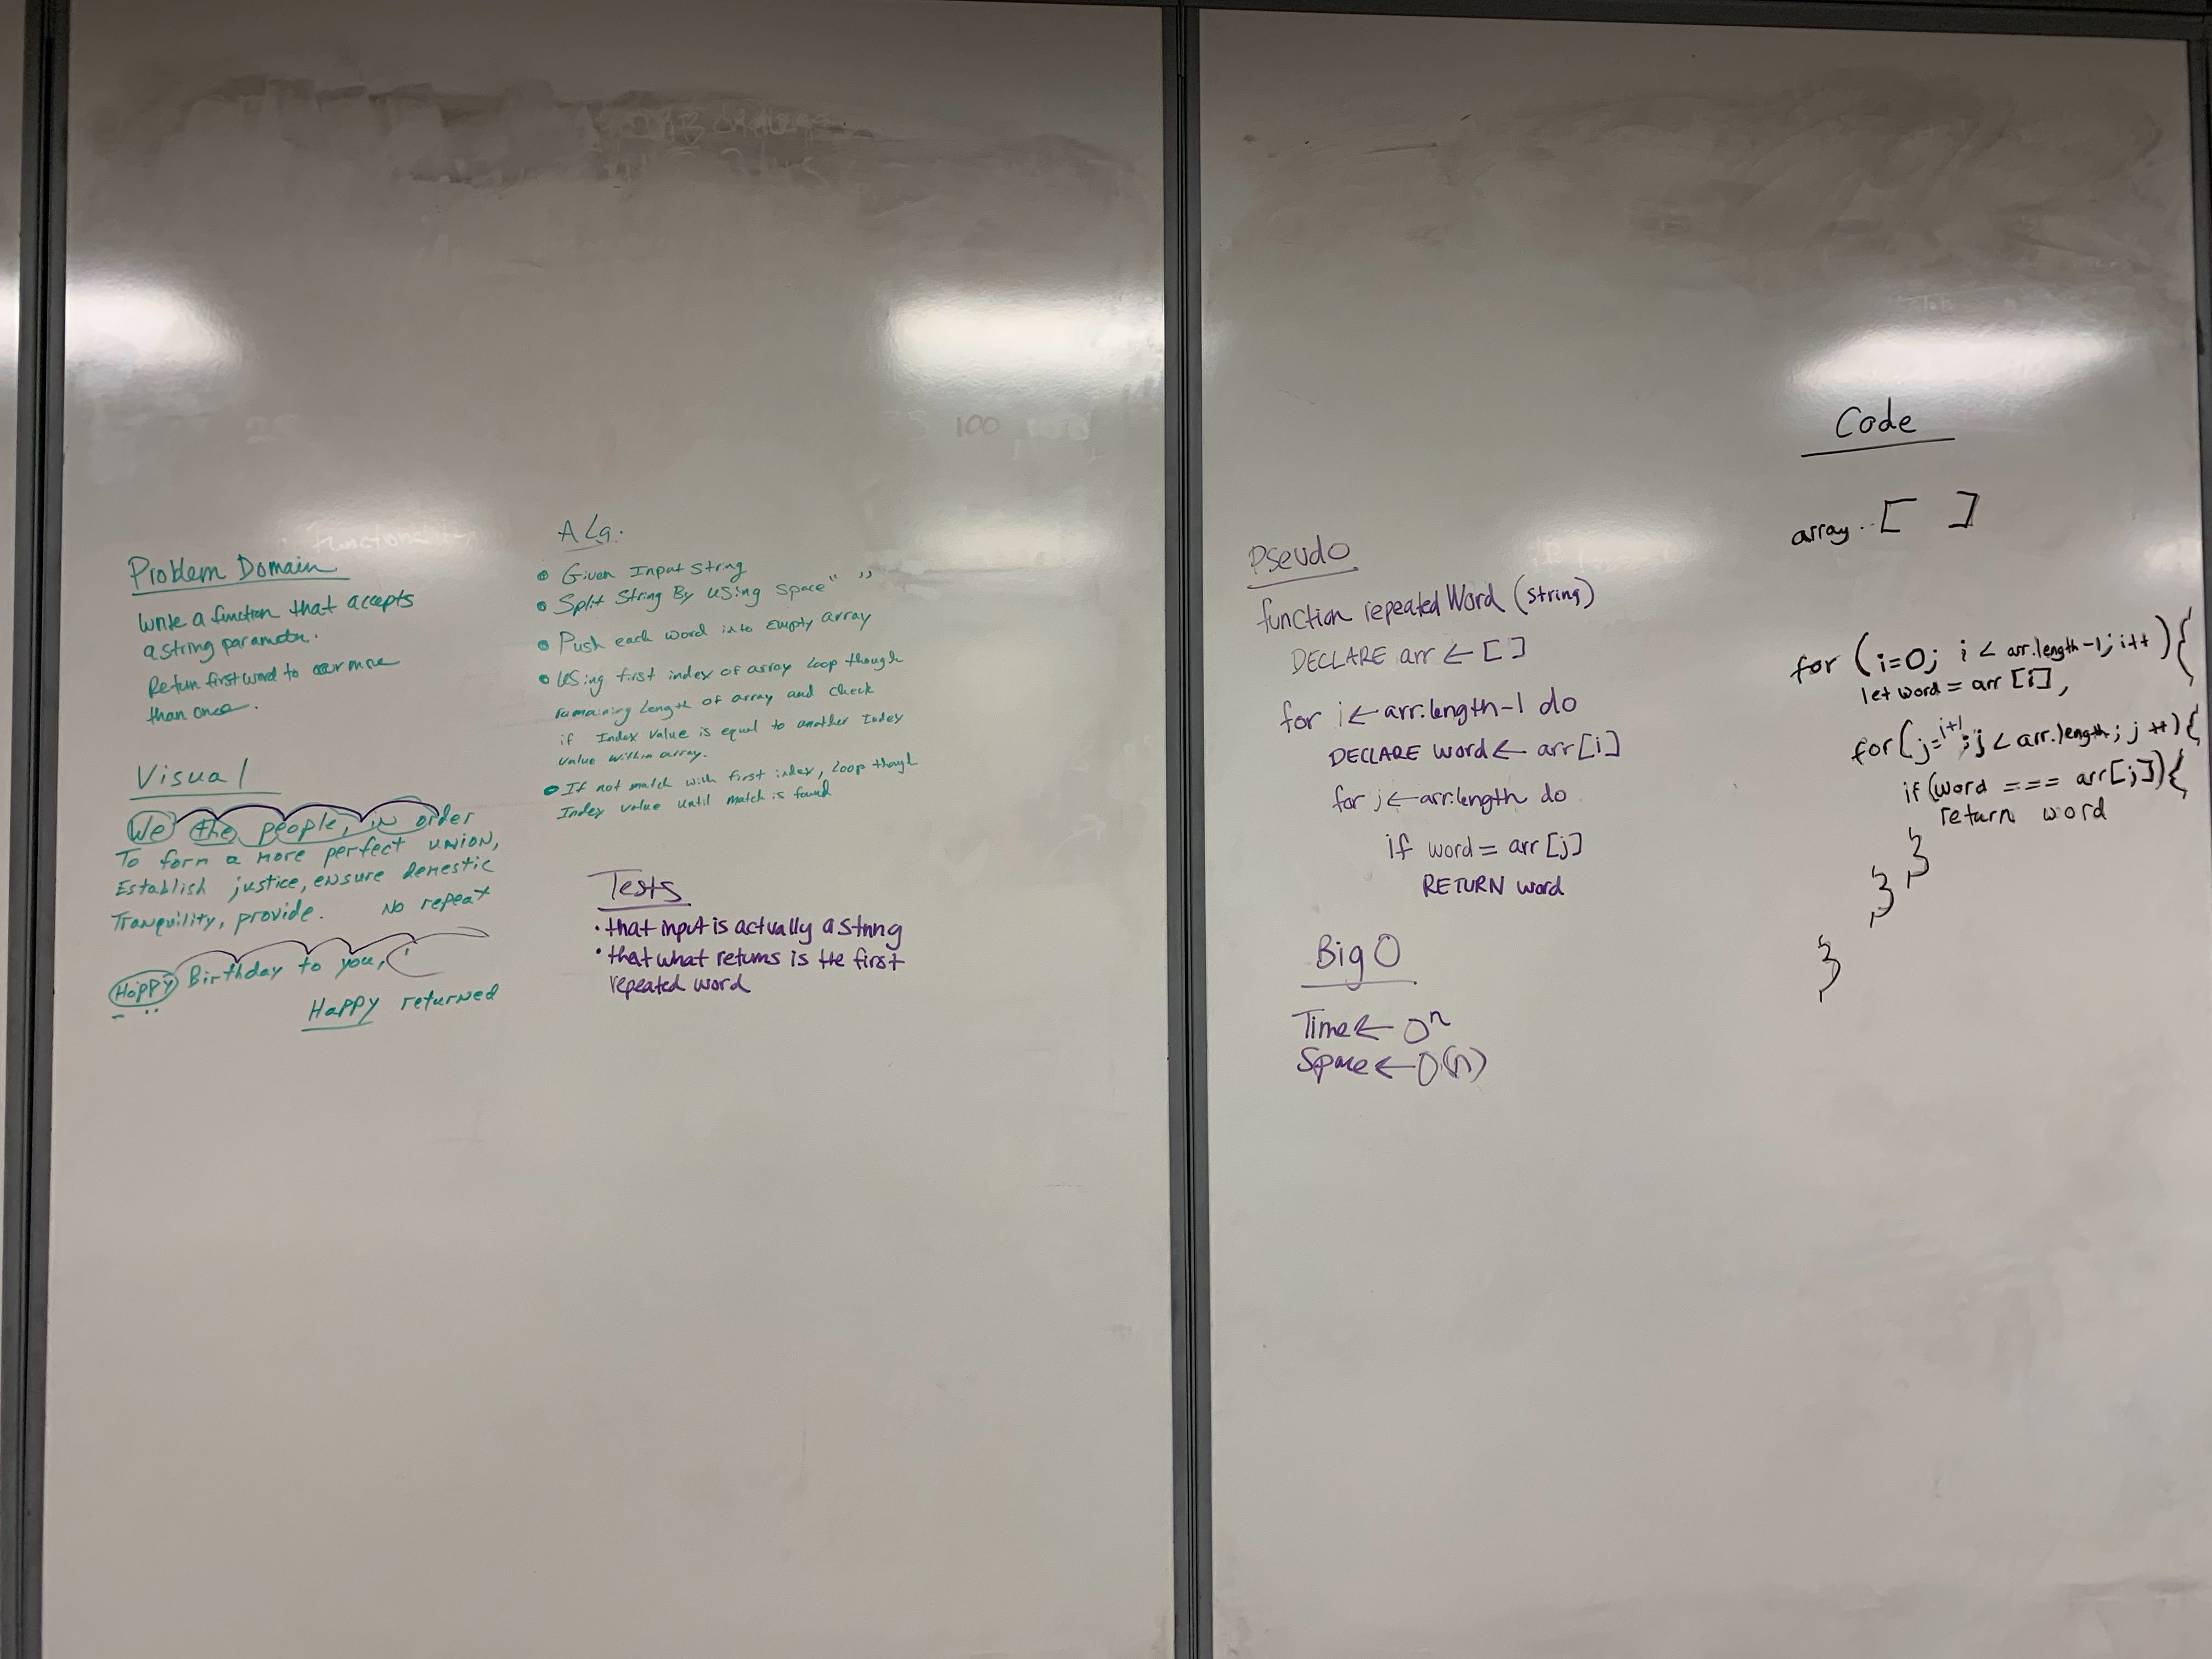 Problem Domain
Write a function that accepts
a string parameter.
Return first word to occur more
than once.
Visual
We the people, in order
To form a more perfect union,
Establish justice, ensure demestic
Tranquility, provide. No repeat
Happy Birthday to you,
Happy returned
Alg.
Given Input String
Split String By using space " "
Push each word into empty array
Using first index of array loop though
remaining length of array and check
if Index value is equal to another Index
value within array.
If not match with first index, loop though
Index value until match is found
Tests
· that input is actually a string
· that what returns is the first
repeated word
Pseudo
function repeated Word (string)
DECLARE arr ← [ ]
for i ← arr.length-1 do
DECLARE word ← arr[i]
for j ← arr.length do
if word = arr[j]
RETURN word
Big O
Time ← O^n
Space ← O(n)
Code
array.. [ ]
for (i=0; i < arr.length-1; i++){
let word = arr[i],
for(j=i+1; j < arr.length; j++){
if (word === arr[j]){
return word
}
}
}
100